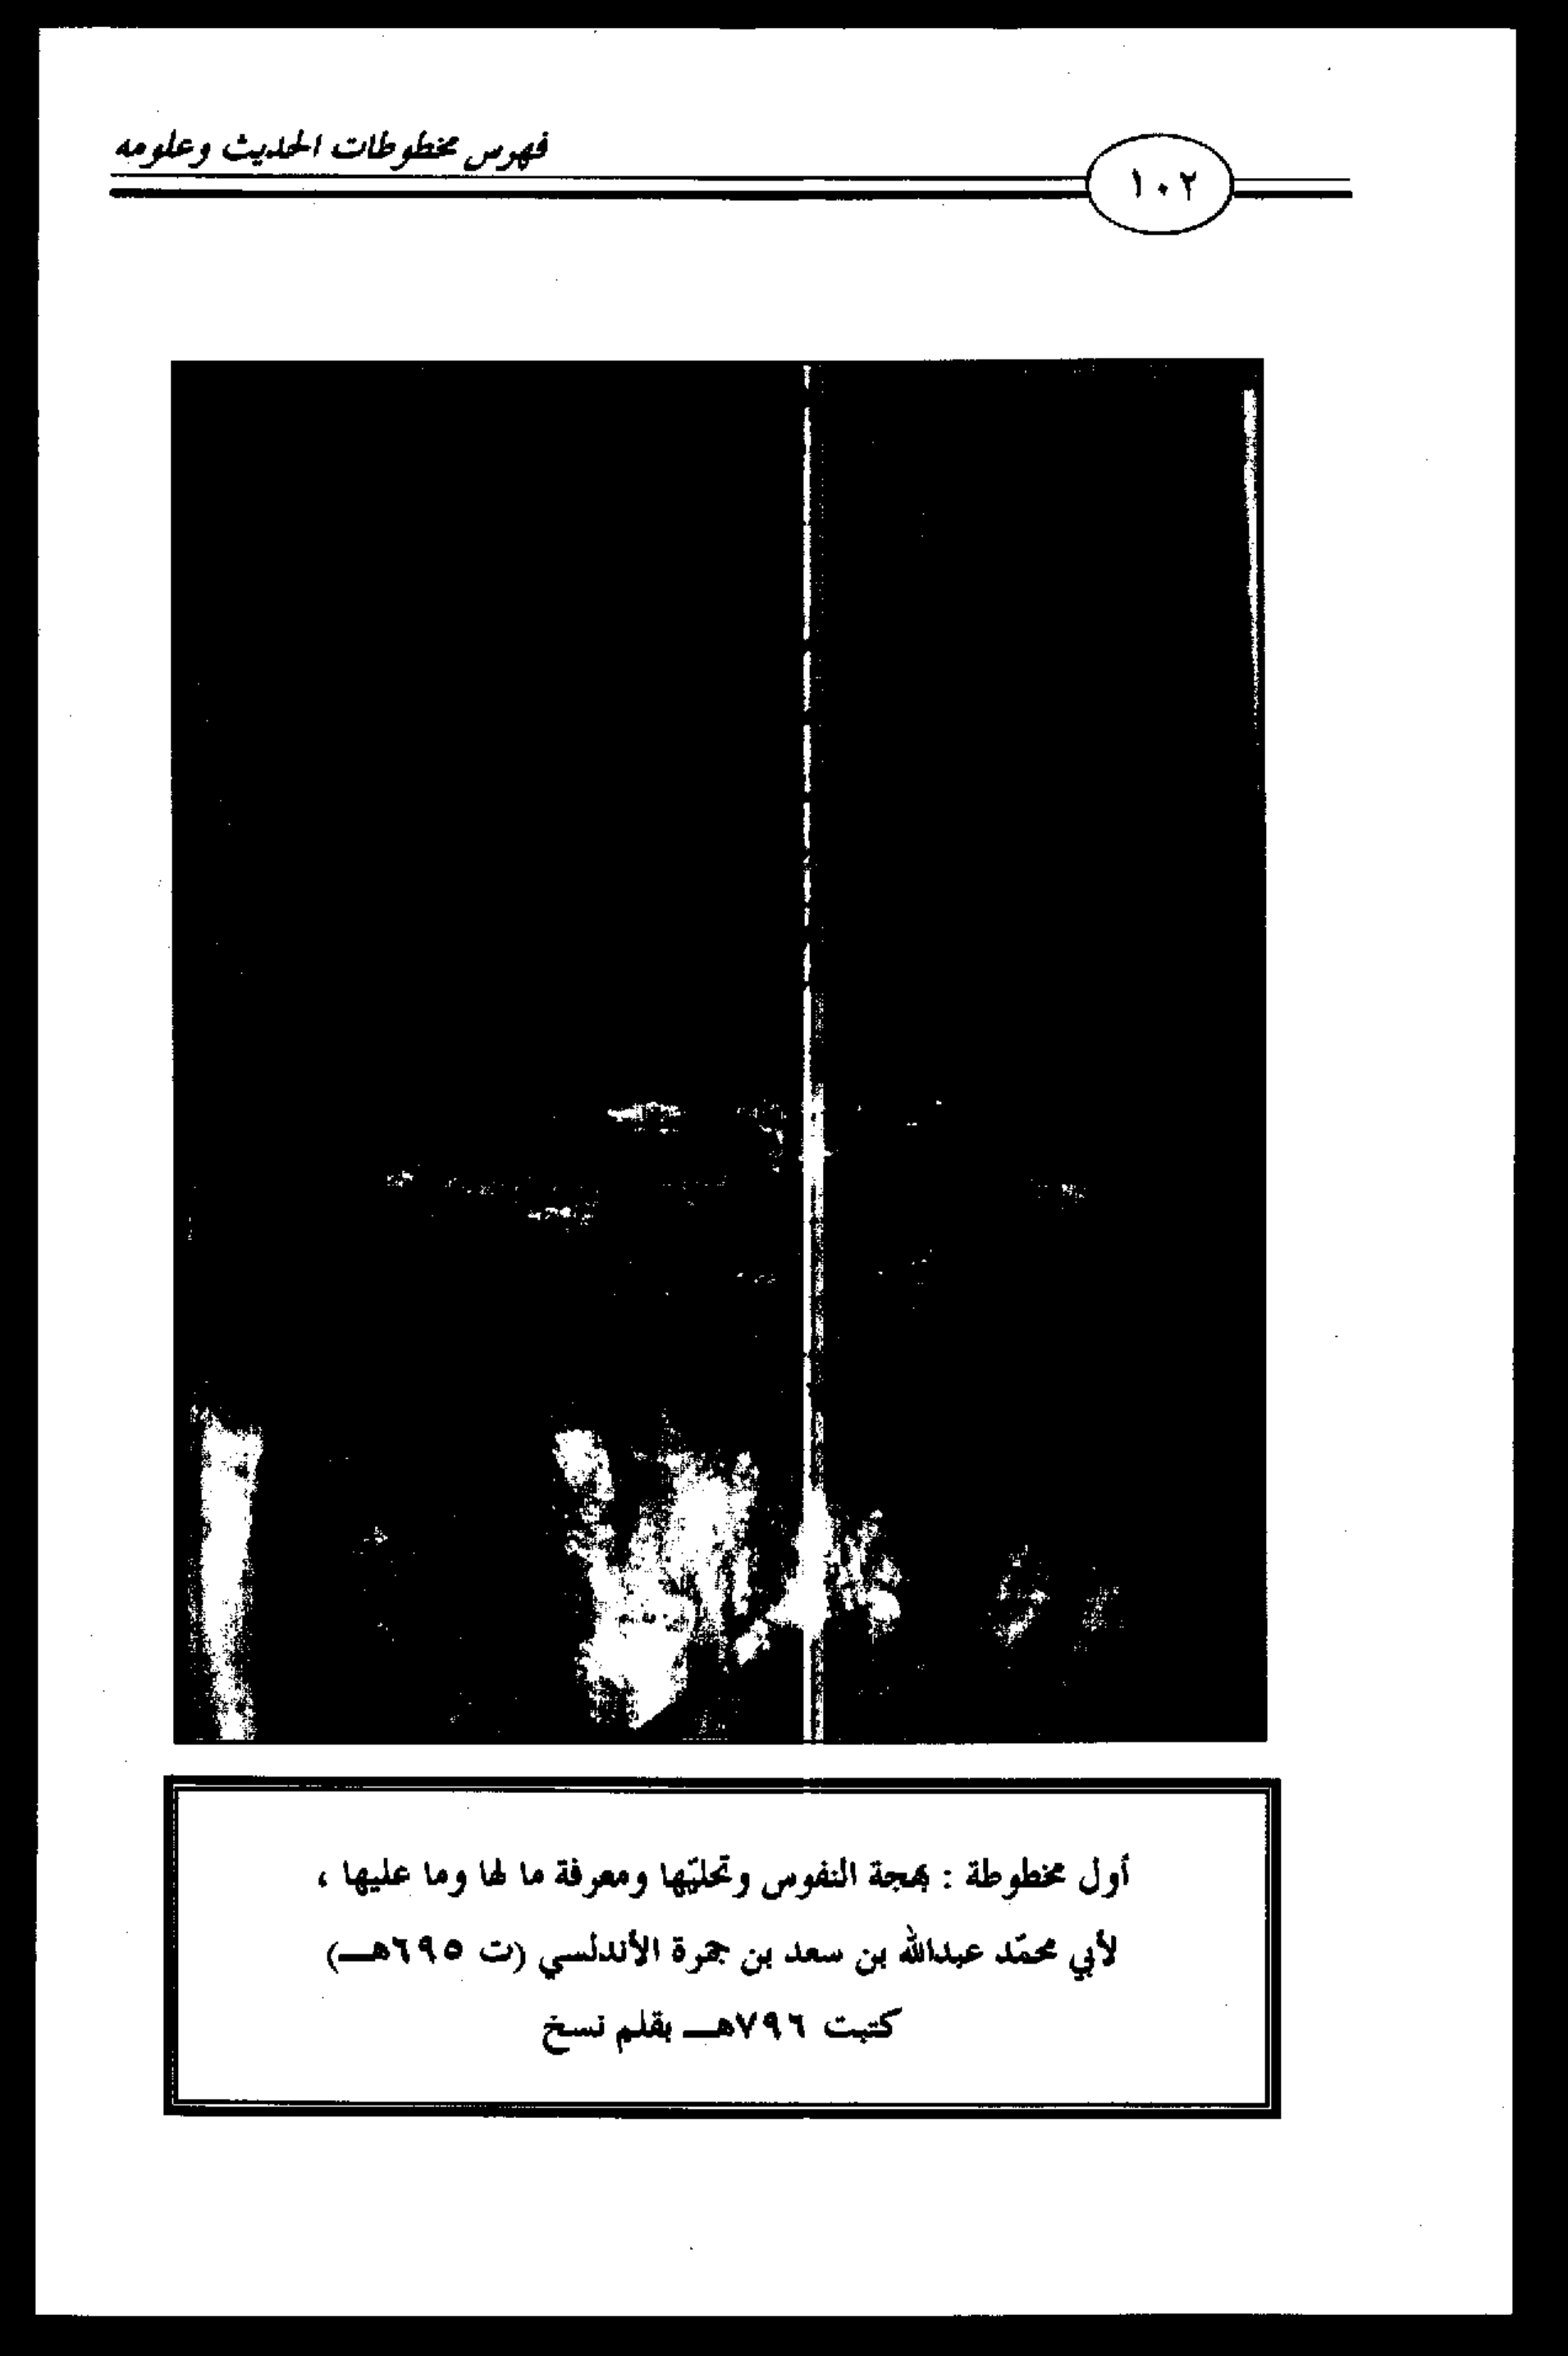 فهرس مخطوطات الحديث وعلومه
١٠٢
أول مخطوطة : بهجة النفوس وتحليّها ومعرفة ما لها وما عليها ،
لأبي محمّد عبدالله بن سعد بن جمرة الأندلسي (ت ٦٩٥هــ)
كتبت ٧٩٦هــ بقلم نسخ